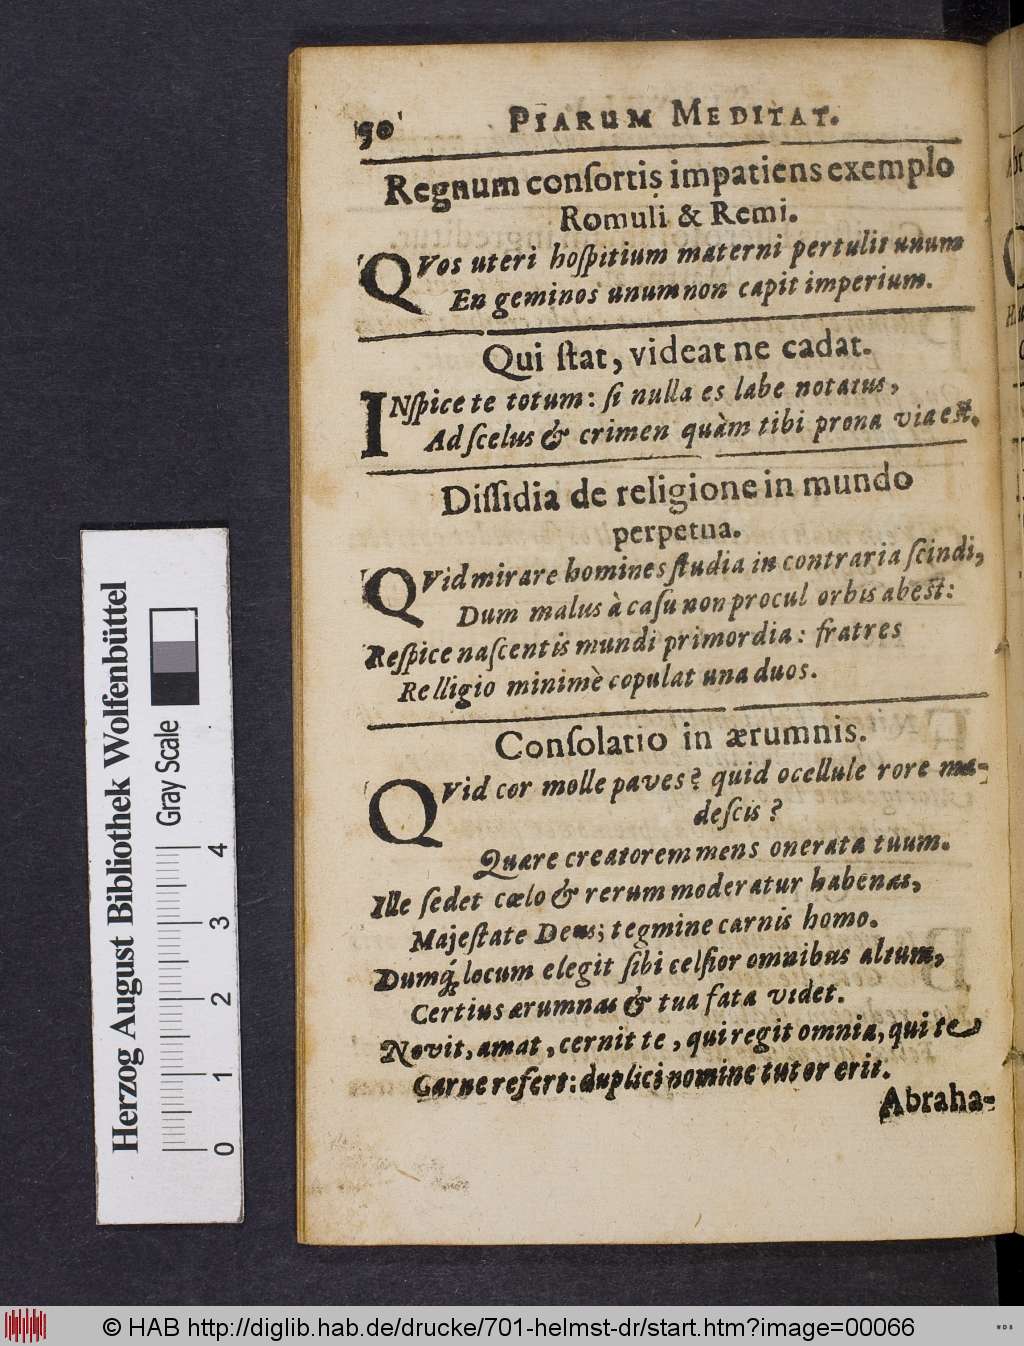 90 PIARUM MEDITAT.
Regnum conſortis impatiens exemplo
Romuli & Remi.
QVos uteri hoſpitium materni pertulit unum
En geminos unum non capit imperium.
Qui ſtat, videat ne cadat.
INſpice te totum: ſi nulla es labe notatus,
Ad ſcelus & crimen quàm tibi prona via est.
Diſſidia de religione in mundo
perpetua.
QVid mirare homines ſtudia in contraria ſcindi,
Dum malus à caſu non procul orbis abest:
Reſpice naſcentis mundi primordia: fratres
Relligio minimè copulat una duos.
Conſolatio in ærumnis.
QVid cor molle paves? quid ocellule rore ma-
deſcis?
Quare creatorem mens onerata tuum.
Ille ſedet cœlo & rerum moderatur habenas,
Majeſtate Deus; tegmine carnis homo.
Dumq́; locum elegit ſibi celſior omnibus altum,
Certius ærumnas & tua fata videt.
Novit, amat, cernit te, qui regit omnia, qui te
Carne refert: duplici nomine tutor erit.
Abraha-
Herzog August Bibliothek Wolfenbüttel
Gray Scale
0 1 2 3 4
© HAB http://diglib.hab.de/drucke/701-helmst-dr/start.htm?image=00066